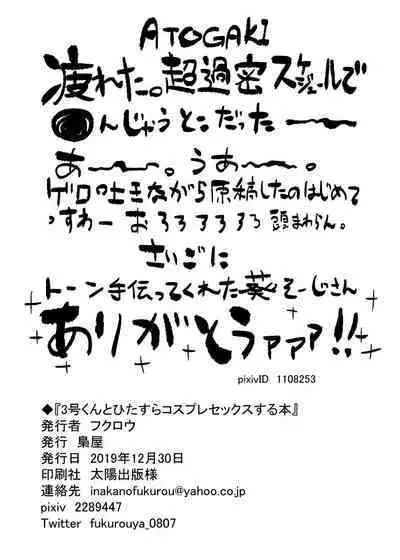 ATOGAKI
疲れた。超過密スケジュールで
●んじゃうとこだったーー
あ〜〜。うあ〜〜。
ゲロ吐きながら原稿したのはじめて
っすわー おろろろろろ 頭まわらん。
さいごに
トーン手伝ってくれた葵そーじさん
ありがとうァァァ!!
pixivID 1108253
◆『3号くんとひたすらコスプレセックスする本』
発行者 フクロウ
発行 梟屋
発行日 2019年12月30日
印刷社 太陽出版様
連絡先 inakanofukurou@yahoo.co.jp
pixiv 2289447
Twitter fukurouya_0807